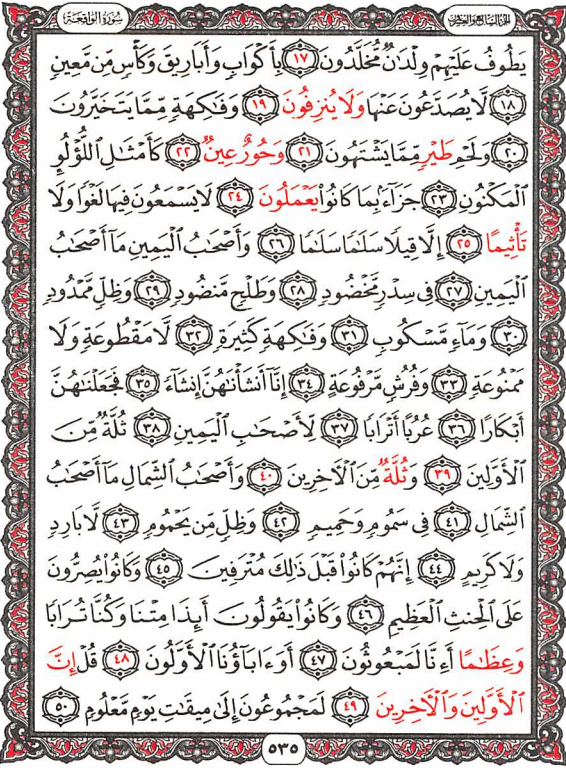 سُورَةُ الوَاقِعَة
الجُزءُ السَّابِعُ وَالعِشْرُونَ
يَطُوفُ عَلَيْهِمْ وِلْدَٰنٌ مُّخَلَّدُونَ ١٧ بِأَكْوَابٍ وَأَبَارِيقَ وَكَأْسٍ مِّن مَّعِينٍ
١٨ لَّا يُصَدَّعُونَ عَنْهَا وَلَا يُنزِفُونَ ١٩ وَفَٰكِهَةٍ مِّمَّا يَتَخَيَّرُونَ
٢٠ وَلَحْمِ طَيْرٍ مِّمَّا يَشْتَهُونَ ٢١ وَحُورٌ عِينٌ ٢٢ كَأَمْثَٰلِ ٱللُّؤْلُوِٕ
ٱلْمَكْنُونِ ٢٣ جَزَآءًۢ بِمَا كَانُوا۟ يَعْمَلُونَ ٢٤ لَا يَسْمَعُونَ فِيهَا لَغْوًا وَلَا
تَأْثِيمًا ٢٥ إِلَّا قِيلًا سَلَٰمًا سَلَٰمًا ٢٦ وَأَصْحَٰبُ ٱلْيَمِينِ مَآ أَصْحَٰبُ
ٱلْيَمِينِ ٢٧ فِى سِدْرٍ مَّخْضُودٍ ٢٨ وَطَلْحٍ مَّنضُودٍ ٢٩ وَظِلٍّ مَّمْدُودٍ
٣٠ وَمَآءٍ مَّسْكُوبٍ ٣١ وَفَٰكِهَةٍ كَثِيرَةٍ ٣٢ لَّا مَقْطُوعَةٍ وَلَا
مَمْنُوعَةٍ ٣٣ وَفُرُشٍ مَّرْفُوعَةٍ ٣٤ إِنَّآ أَنشَأْنَٰهُنَّ إِنشَآءً ٣٥ فَجَعَلْنَٰهُنَّ
أَبْكَارًا ٣٦ عُرُبًا أَتْرَابًا ٣٧ لِّأَصْحَٰبِ ٱلْيَمِينِ ٣٨ ثُلَّةٌ مِّنَ
ٱلْأَوَّلِينَ ٣٩ وَثُلَّةٌ مِّنَ ٱلْءَاخِرِينَ ٤٠ وَأَصْحَٰبُ ٱلشِّمَالِ مَآ أَصْحَٰبُ
ٱلشِّمَالِ ٤١ فِى سَمُومٍ وَحَمِيمٍ ٤٢ وَظِلٍّ مِّن يَحْمُومٍ ٤٣ لَّا بَارِدٍ
وَلَا كَرِيمٍ ٤٤ إِنَّهُمْ كَانُوا۟ قَبْلَ ذَٰلِكَ مُتْرَفِينَ ٤٥ وَكَانُوا۟ يُصِرُّونَ
عَلَى ٱلْحِنثِ ٱلْعَظِيمِ ٤٦ وَكَانُوا۟ يَقُولُونَ أَئِذَا مِتْنَا وَكُنَّا تُرَابًا
وَعِظَٰمًا أَءِنَّا لَمَبْعُوثُونَ ٤٧ أَوَءَابَآؤُنَا ٱلْأَوَّلُونَ ٤٨ قُلْ إِنَّ
ٱلْأَوَّلِينَ وَٱلْءَاخِرِينَ ٤٩ لَمَجْمُوعُونَ إِلَىٰ مِيقَٰتِ يَوْمٍ مَّعْلُومٍ ٥٠
٥٣٥